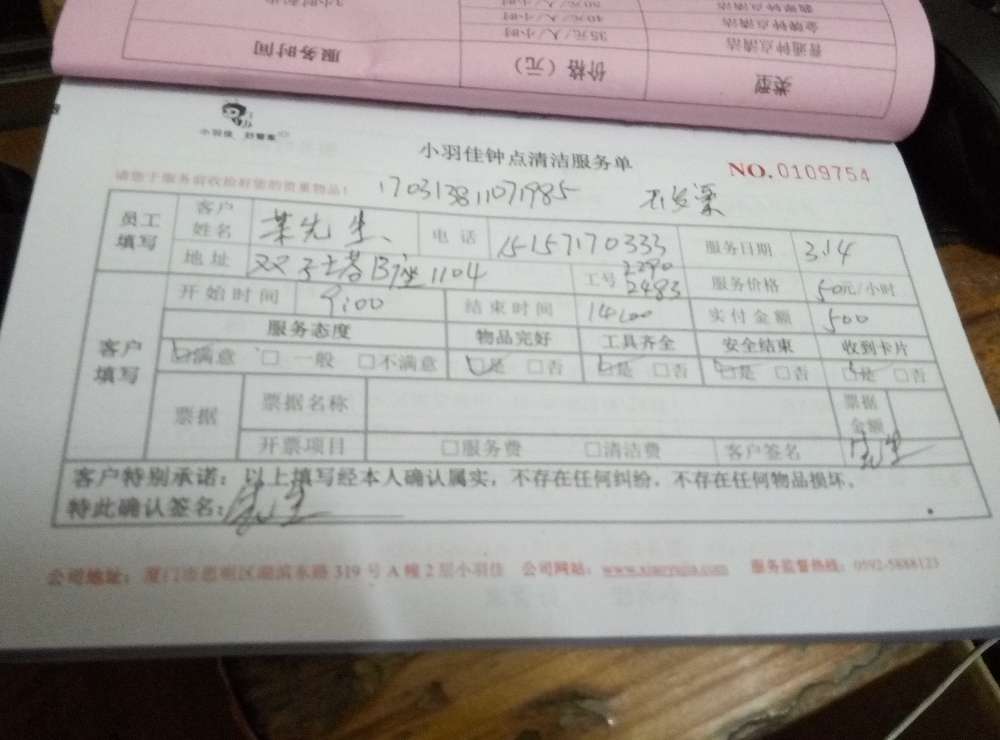 3小时起步
50元/人/小时
40元/人/小时
金牌钟点清洁
35元/人/小时
普通钟点清洁
服务时间
价格（元）
类型
小羽佳
小羽佳钟点清洁服务单
NO.0109754
请您于服务前收捡好您的贵重物品！
170313811071985
员工填写 客户姓名 先生 电话 15157170333 服务日期 3.14
地址 双子塔B座1104 工号 2290 2483 服务价格 50元/小时
客户填写 开始时间 9:00 结束时间 14:00 实付金额 500
服务态度 物品完好 工具齐全 安全结束 收到卡片
□满意 □一般 □不满意 □是 □否 □是 □否 □是 □否 □是 □否
票据 票据名称 票据金额
开票项目 □服务费 □清洁费 客户签名
客户特别承诺：以上填写经本人确认属实，不存在任何纠纷，不存在任何物品损坏，
特此确认签名：
公司地址：厦门市思明区湖滨东路319号A幢2层小羽佳 公司网站： 服务监督热线：0592-5888123